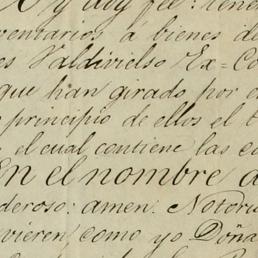 y doy fee: tene
entarios, á bienes de
es Valdivielso Ex-Co
que han girado por e
principio de ellos el t
el cual contiene las c
En el nombre d
deroso: amen. Notori
vieren, como yo Doña